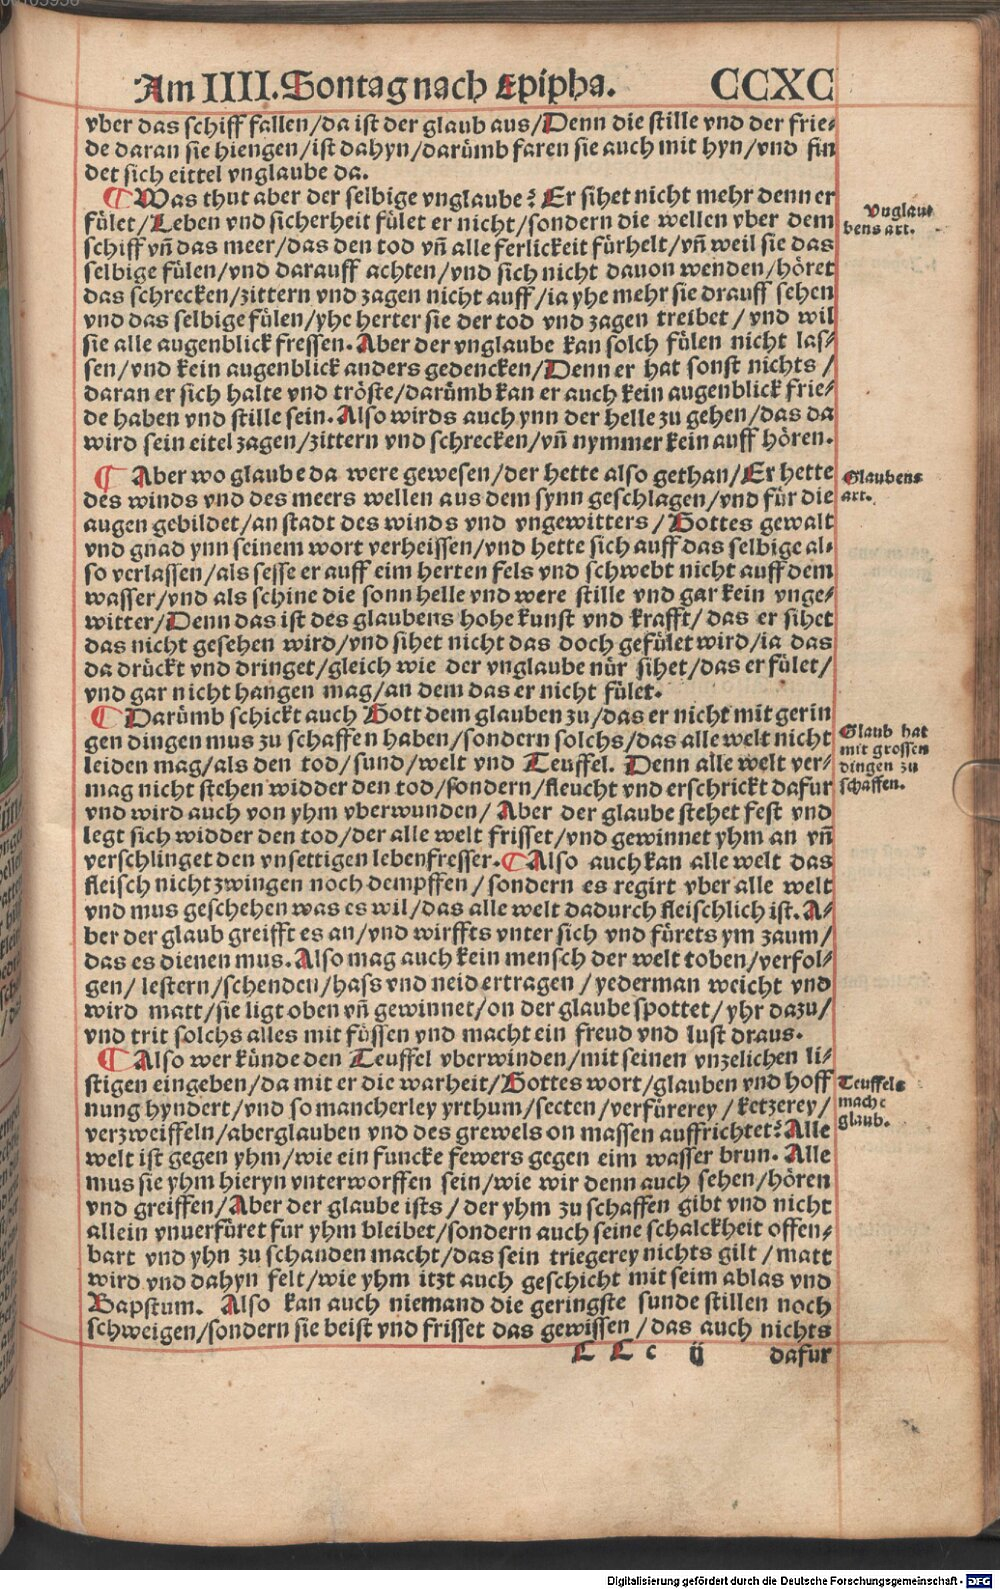 Am IIII. Sontag nach Epipha. CCXC
vber das schiff fallen/da ist der glaub aus/Denn die stille vnd der frie⸗
de daran sie hiengen/ist dahyn/darümb faren sie auch mit hyn/vnd fin
det sich eittel vnglaube da.
¶ Was thut aber der selbige vnglaube? Er sihet nicht mehr denn er
fület/Leben vnd sicherheit fület er nicht/sondern die wellen vber dem
schiff vñ das meer/das den tod vñ alle ferlickeit fürhelt/vñ weil sie das
selbige fülen/vnd darauff achten/vnd sich nicht dauon wenden/höret
das schrecken/zittern vnd zagen nicht auff/ia yhe mehr sie drauff sehen
vnd das selbige fülen/yhe herter sie der tod vnd zagen treibet/vnd wil
sie alle augenblick fressen. Aber der vnglaube kan solch fülen nicht las⸗
sen/vnd kein augenblick anders gedencken/Denn er hat sonst nichts/
daran er sich halte vnd tröste/darümb kan er auch kein augenblick frie⸗
de haben vnd stille sein. Also wirds auch ynn der helle zu gehen/das da
wird sein eitel zagen/zittern vnd schrecken/vñ nymmer kein auff hören.
Vnglau
bens art.
¶ Aber wo glaube da were gewesen/der hette also gethan/Er hette
des winds vnd des meers wellen aus dem synn geschlagen/vnd für die
augen gebildet/an stadt des winds vnd vngewitters/Gottes gewalt
vnd gnad ynn seinem wort verheissen/vnd hette sich auff das selbige al⸗
so verlassen/als sesse er auff eim herten fels vnd schwebt nicht auff dem
wasser/vnd als schine die sonn helle vnd were stille vnd gar kein vnge⸗
witter/Denn das ist des glaubens hohe kunst vnd krafft/das er sihet
das nicht gesehen wird/vnd sihet nicht das doch gefület wird/ia das
da drückt vnd dringet/gleich wie der vnglaube nür sihet/das er fület/
vnd gar nicht hangen mag/an dem das er nicht fület.
Glaubens
art.
¶ Darümb schickt auch Gott dem glauben zu/das er nicht mit gerin
gen dingen mus zu schaffen haben/sondern solchs/das alle welt nicht
leiden mag/als den tod/sund/welt vnd Teuffel. Denn alle welt ver⸗
mag nicht stehen widder den tod/sondern/fleucht vnd erschrickt dafur
vnd wird auch von yhm vberwunden/Aber der glaube stehet fest vnd
legt sich widder den tod/der alle welt frisset/vnd gewinnet yhm an vñ
verschlinget den vnsettigen lebenfresser. ¶ Also auch kan alle welt das
fleisch nicht zwingen noch dempffen/sondern es regirt vber alle welt
vnd mus geschehen was es wil/das alle welt dadurch fleischlich ist. A⸗
ber der glaub greifft es an/vnd wirffts vnter sich vnd fürets ym zaum/
das es dienen mus. Also mag auch kein mensch der welt toben/verfol⸗
gen/lestern/schenden/hass vnd neid ertragen/yederman weicht vnd
wird matt/sie ligt oben vñ gewinnet/on der glaube spottet/yhr dazu/
vnd trit solchs alles mit füssen vnd macht ein freud vnd lust draus.
Glaub hat
mit grossen
dingen zu
schaffen.
¶ Also wer künde den Teuffel vberwinden/mit seinen vnzelichen li⸗
stigen eingeben/da mit er die warheit/Gottes wort/glauben vnd hoff
nung hyndert/vnd so mancherley yrthum/secten/verfürerey/ketzerey/
verzweiffeln/aberglauben vnd des grewels on massen auffrichtet? Alle
welt ist gegen yhm/wie ein funcke fewers gegen eim wasser brun. Alle
mus sie yhm hieryn vnterworffen sein/wie wir denn auch sehen/hören
vnd greiffen/Aber der glaube ists/der yhm zu schaffen gibt vnd nicht
allein vnuerfüret fur yhm bleibet/sondern auch seine schalckheit offen⸗
bart vnd yhn zu schanden macht/das sein triegerey nichts gilt/matt
wird vnd dahyn felt/wie yhm itzt auch geschicht mit seim ablas vnd
Bapstum. Also kan auch niemand die geringste sunde stillen noch
schweigen/sondern sie beist vnd frisset das gewissen/das auch nichts
Teuffels
mache
glaub.
LL c ij dafur
Digitalisierung gefördert durch die Deutsche Forschungsgemeinschaft - DFG